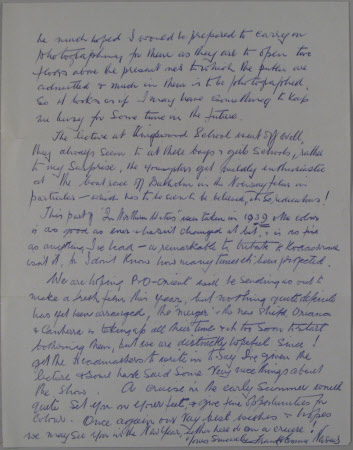 he much hoped I would be prepared to carry on
photographing for them as they are to open two
floors above the present not to which the public are
admitted & much in them is to be photographed.
So it looks as if I may have something to keep
me busy for some time in the future.
The lecture at School went off well,
they always seem to at these boys & girls schools, rather
to my surprise, the youngsters get wildly enthusiastic
at "The boat race off in the film in
particular – which has to be seen to be believed, it's so ridiculous!
This part of "In Northern Waters" was taken in 1939 & the colour
is as good as ever & hasn't changed at all, & is as fine
as anything I've had – a remarkable tribute to Kodachrome
isn't it, & I don't know how many times it's been projected.
We are hoping P & O-Orient will be sending us out to
make a fresh film this year, but nothing quite definite
has yet been arranged, the merger & the new ships Oriana
& Canberra is taking up all their time & it's too soon to start
bothering them, but we are distinctly hopeful since I
get the Headmasters to write in & say I've given the
lecture & some have said some very nice things about
the show. A cruise in the early summer would
quite set you on your feet, & give fine opportunities for
colour. Once again our very best wishes & hopes
we may see you in the New Year, either here or on a cruise!
Yours Sincerely